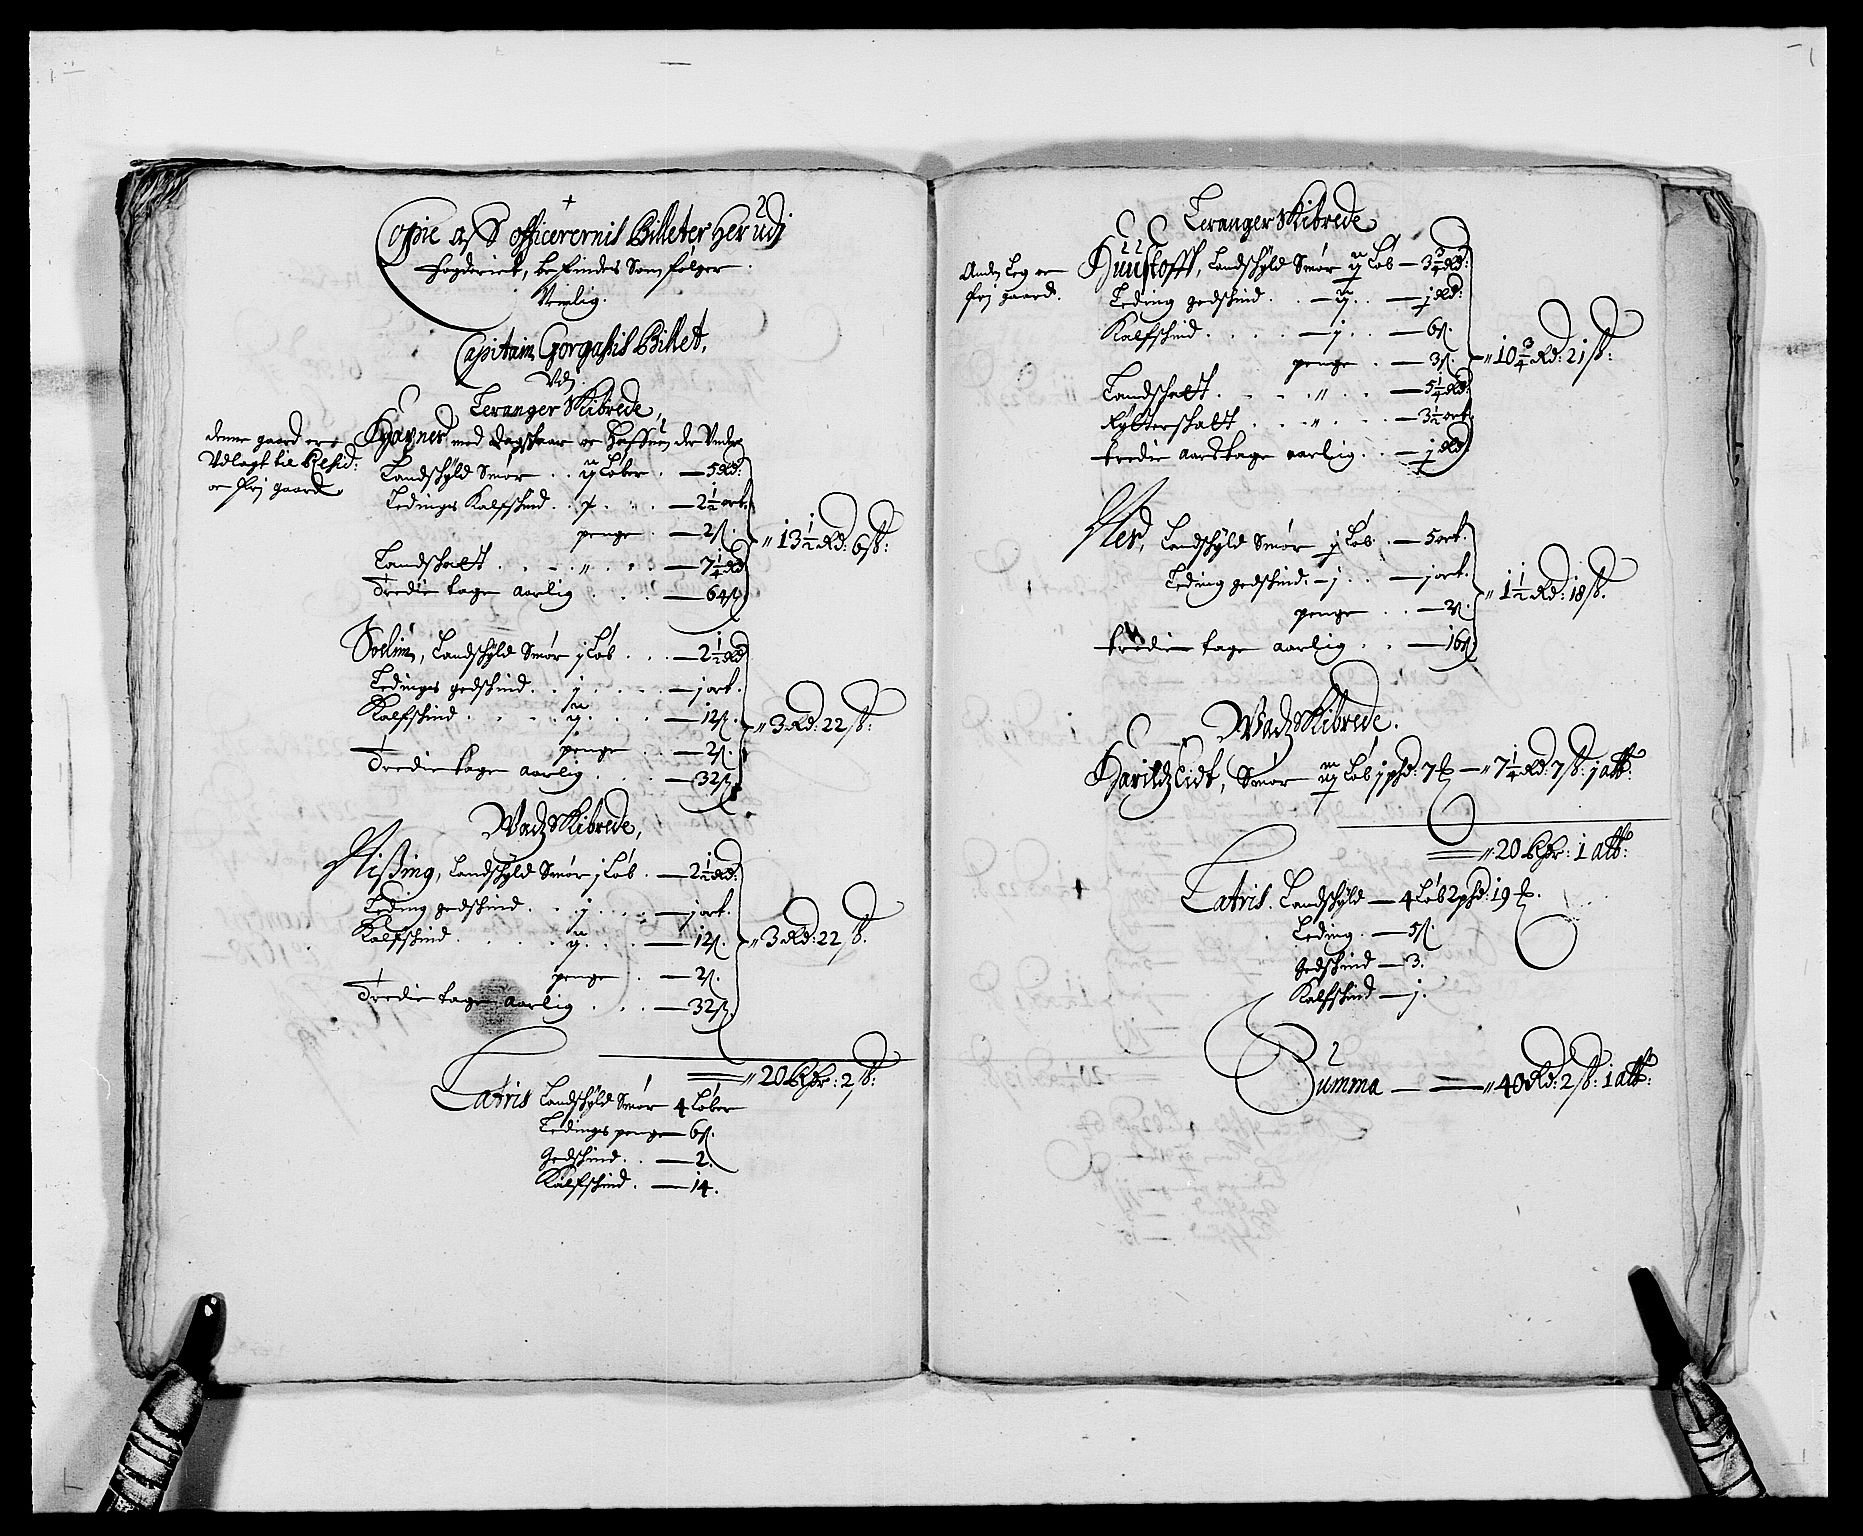 Copie aff officerernis Billeter her udi
fogderiet, befindes Som følger
Nemlig.
Capitain Gorgassis Billet,
Udj
Leranger Skibrede,
denne gaard er
Udlagt til Resid:
er frj gaard
med dagskaar er der Under
Landschyld Smør .. ij Løber . — 5 Rd:
Ledings Kalfschind . . 7 . . . — 2½ ort.
penge . — 2 s.
Landschatt . . . . „ . . . — 7¼ Rd
Tredie tage aarlig . . . — 64 s
„13½ Rd: 6 s:
Landschyld Smør j Løb . . . — 2½ Rd
Ledings gedschind . . j . . . . — j ort.
Kalfschind . . . . ij . . . — 12 s.
penge . . — 2 s.
Tredie tage aarlig . . . — 32 s
„3 Rd: 22 s:
Wadz Skibrede,
Nissing, Landschyld Smør j Løb . — 2½ Rd:
Leding gedschind . . j . . . — j ort.
Kalfschind . . . . ij . . . — 12 s.
penge . — 2 s.
Tredie tage aarlig . . . — 32 s.
„3 Rd: 22 s.
„20 Rdr: 2 s:
Latris Landschyld Smør 4 Løber
Ledings penge — 6 s.
Gedschind . . — 2.
Kalfschind . — 14.
Leranger Skibrede
Anden Leg er
frj gaard.
Landschyld Smør ij Løb — 3¾ Rd:
Leding gedschind . . — ij . . — j Rd:
Kalfschind . . . . — j . . — 6 s.
penge . — 3 s.
Landschatt . . . . „ . . — 5¼ Rd
Rytterschatt . . . „ . . . — 3½ ort
tredie aars tage aarlig . . — j Rd
„10¾ Rd: 21 s:
Nes, Landschyld Smør j Løb . — 5 ort.
Leding gedschind . — j . . — j ort.
penge . . — 2 s.
tredie tage aarlig . . — 16 s
„1½ Rd: 18 s.
Wadz Skibrede.
Smør iij Løb j pd: 7 — „7¼ Rd: 7 s: 1 alb:
„20 Rdr: 1 alb:
Latris. Landschyld — 4 Løb 2 pd: 19
Leding . — 5 s.
gedschind — 3.
Kalfschind — j.
Summa — „40 Rd: 2 s: 1 alb: